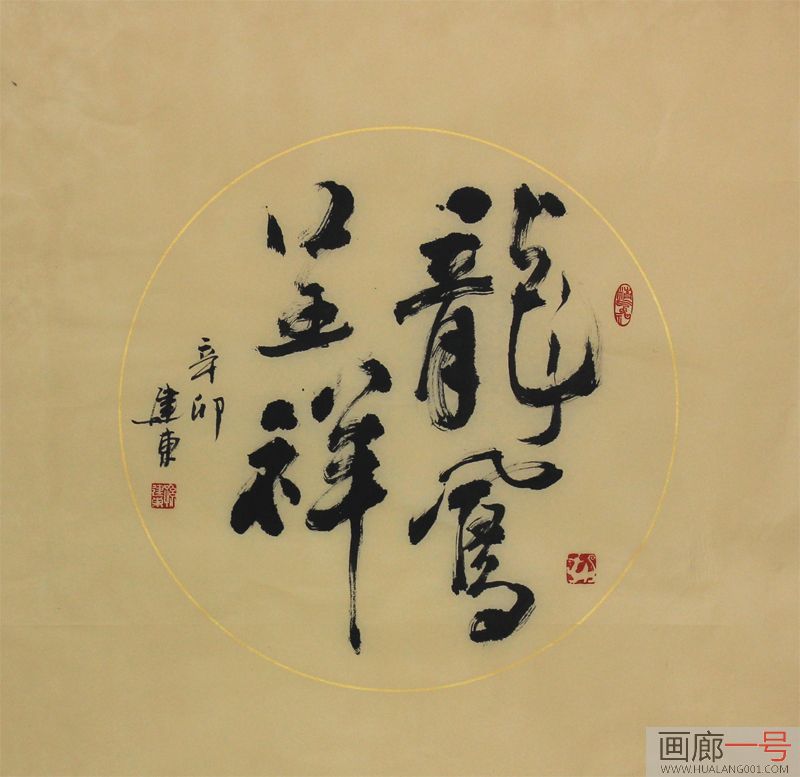 龍鳳
呈祥
辛卯
建東
画廊一号
WWW.HUALANG001.COM